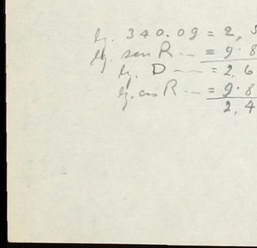 lg. 340.09 = 2,5
lg. sen R. — = 9.8
lg. D — = 2,6
lg. cos R. — = 9.8
2,4